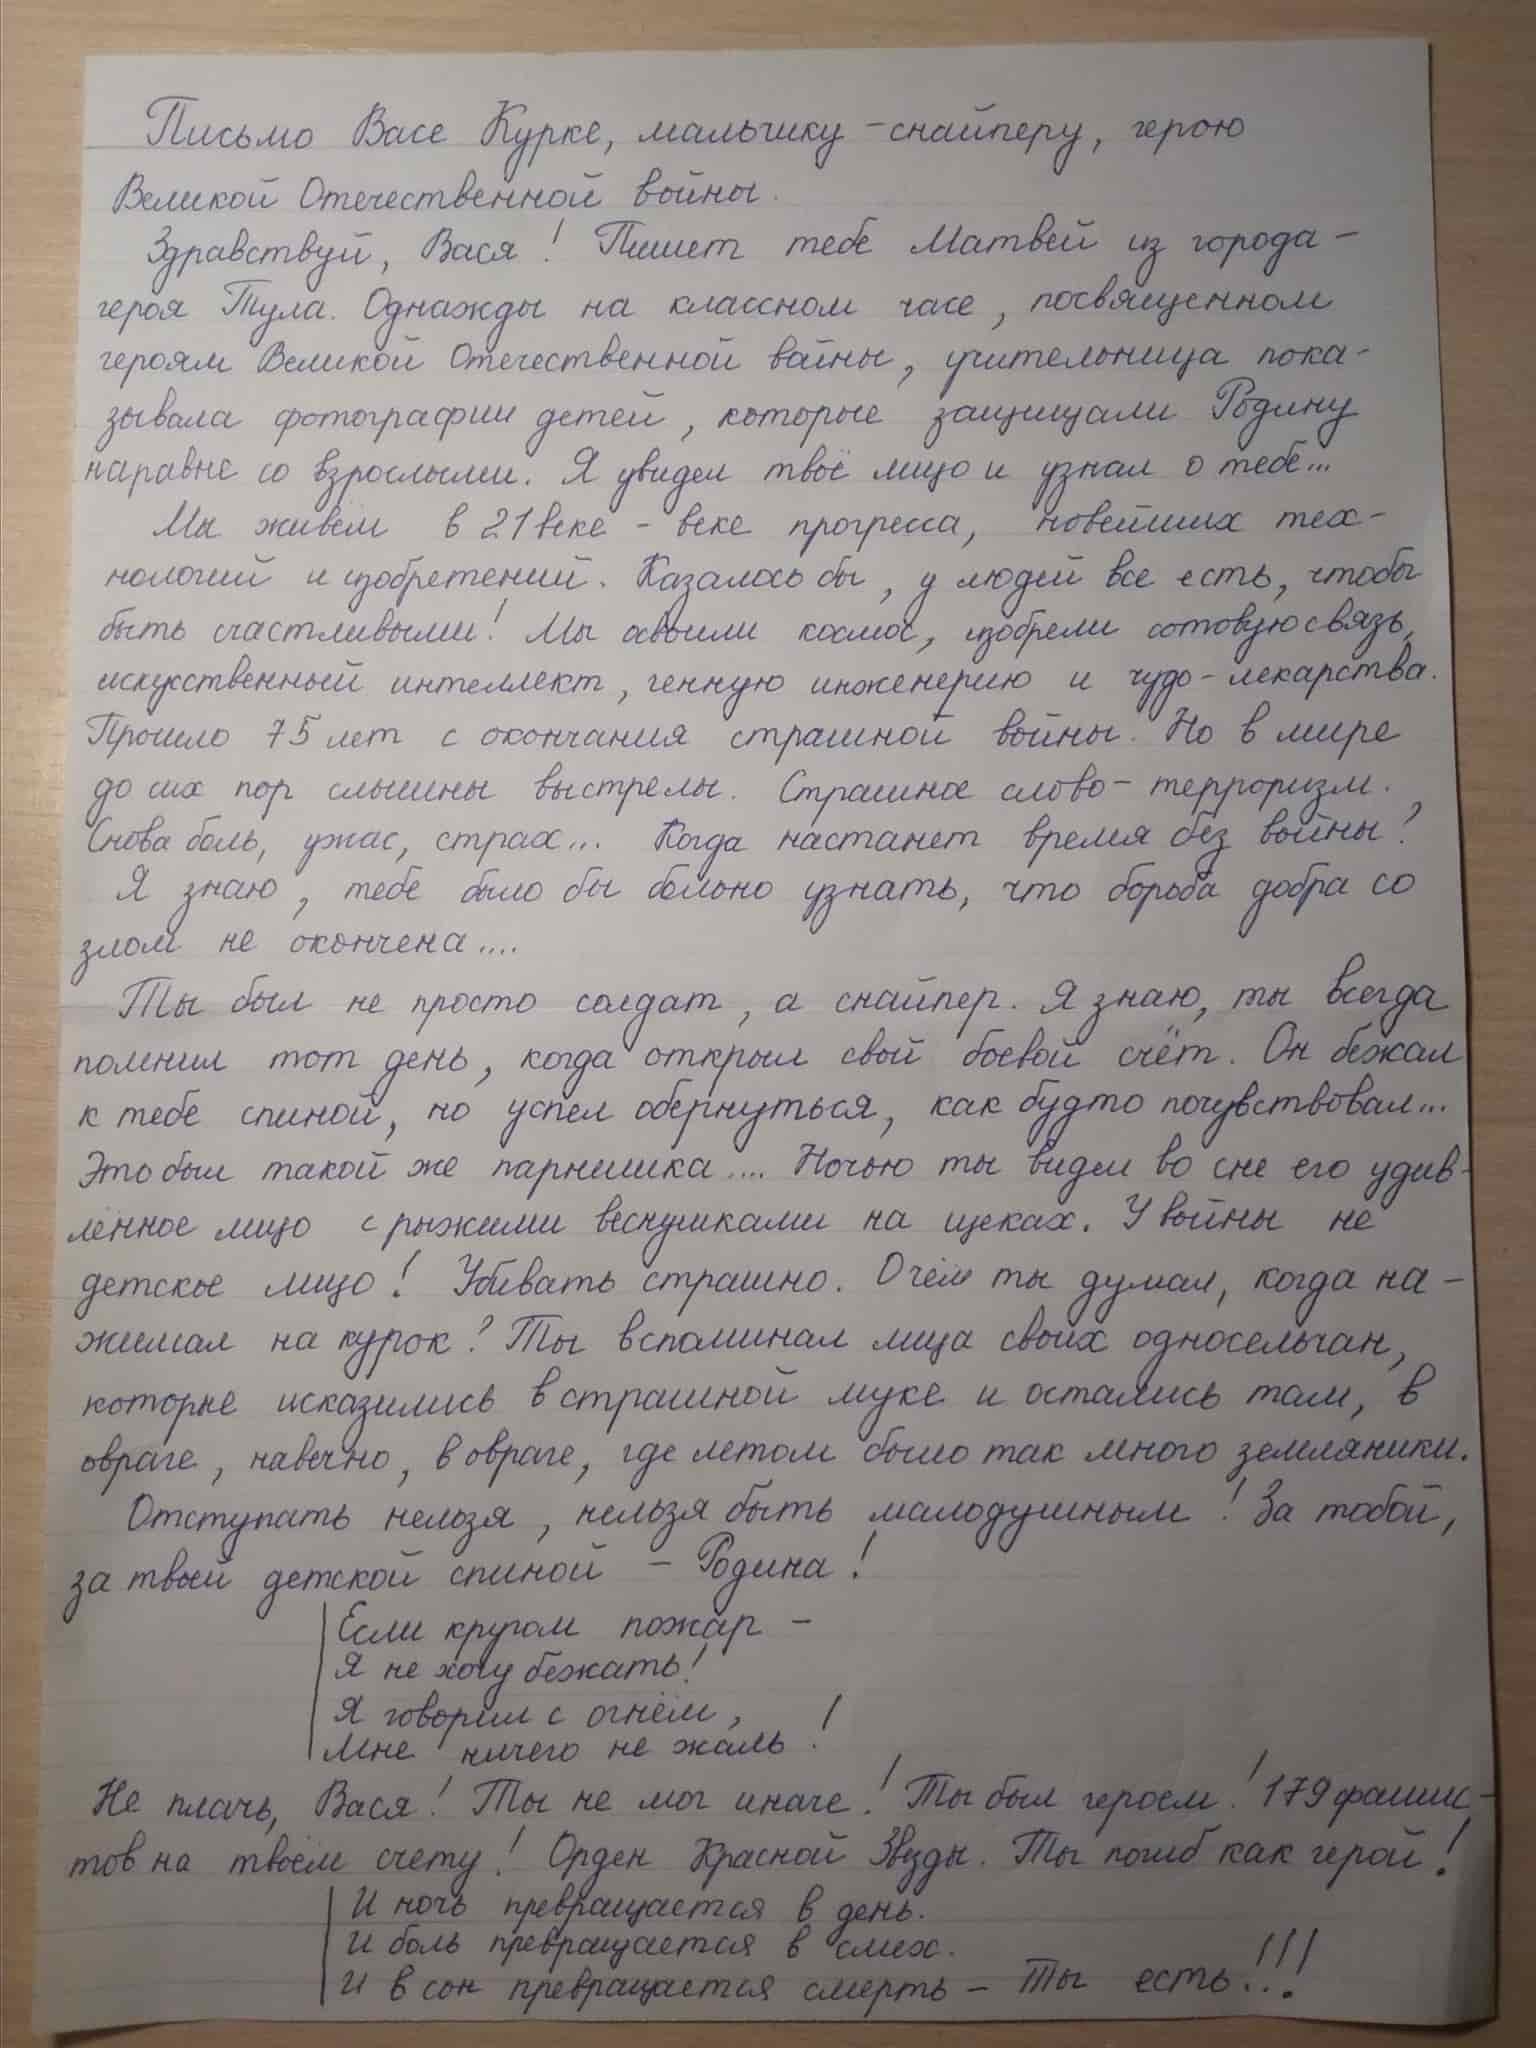 Письмо Васе Курке, мальчику-снайперу, герою
Великой Отечественной войны.
Здравствуй, Вася! Пишет тебе Матвей из города-
героя Тула. Однажды на классном часе, посвященном
героям Великой Отечественной войны, учительница пока-
зывала фотографии детей, которые защищали Родину
наравне со взрослыми. Я увидел твоё лицо и узнал о тебе...
Мы живём в 21 веке - веке прогресса, новейших тех-
нологий и изобретений. Казалось бы, у людей все есть, чтобы
быть счастливыми! Мы освоили космос, изобрели сотовую связь,
искусственный интеллект, генную инженерию и чудо-лекарства.
Прошло 75 лет с окончания страшной войны. Но в мире
до сих пор слышны выстрелы. Страшное слово - терроризм.
Снова боль, ужас, страх... Когда настанет время без войны?
Я знаю, тебе было бы больно узнать, что борьба добра со
злом не окончена....
Ты был не просто солдат, а снайпер. Я знаю, ты всегда
помнил тот день, когда открыл свой боевой счёт. Он бежал
к тебе спиной, но успел обернуться, как будто почувствовал...
Это был такой же парнишка.... Ночью ты видел во сне его удив-
лённое лицо с рыжими веснушками на щеках. У войны не
детское лицо! Убивать страшно. О чём ты думал, когда на-
жимал на курок? Ты вспоминал лица своих односельчан,
которые исказились в страшной муке и остались там, в
овраге, навечно, в овраге, где летом было так много земляники.
Отступать нельзя, нельзя быть малодушным! За тобой,
за твоей детской спиной - Родина!
Если кругом пожар -
Я не хочу бежать!
Я говорил с огнём,
Мне ничего не жаль!
Не плачь, Вася! Ты не мог иначе! Ты был героем! 179 фашис-
тов на твоём счету! Орден Красной Звезды. Ты погиб как герой!
И ночь превращается в день.
И боль превращается в смех.
И в сон превращается смерть - Ты есть!!!